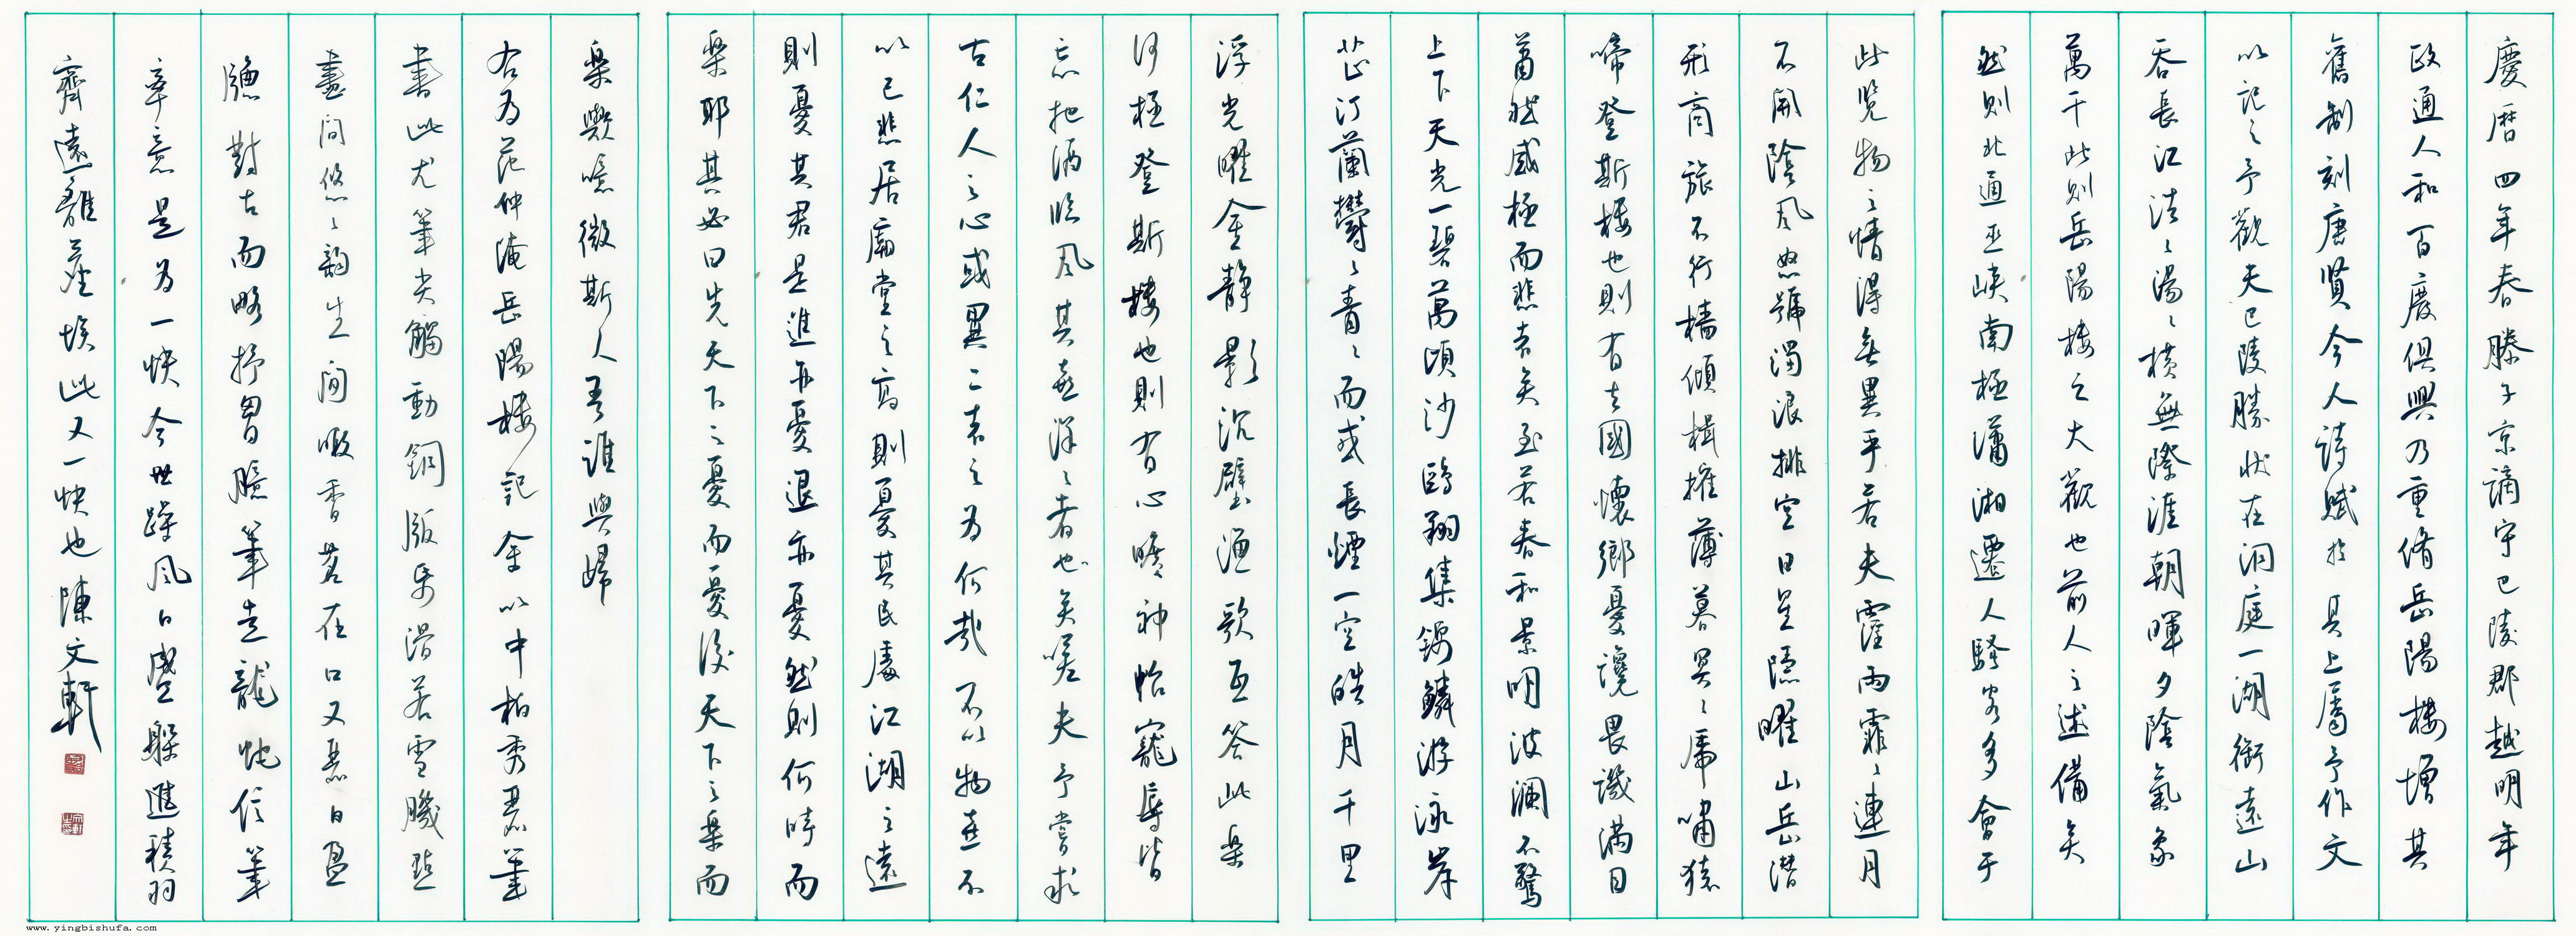 慶曆四年春滕子京謫守巴陵郡越明年
政通人和百廢俱興乃重脩岳陽樓增其
舊制刻唐賢今人詩賦於其上屬予作文
以記之予觀夫巴陵勝狀在洞庭一湖銜遠山
吞長江浩浩湯湯橫無際涯朝暉夕陰氣象
萬千此則岳陽樓之大觀也前人之述備矣
然則北通巫峽南極瀟湘遷人騷客多會于
此覽物之情得無異乎若夫霪雨霏霏連月
不開陰風怒號濁浪排空日星隱曜山岳潛
形商旅不行檣傾楫摧薄暮冥冥虎嘯猿
啼登斯樓也則有去國懷鄉憂讒畏譏滿目
蕭然感極而悲者矣至若春和景明波瀾不驚
上下天光一碧萬頃沙鷗翔集錦鱗游泳岸
芷汀蘭鬱鬱青青而或長煙一空皓月千里
浮光曜金靜影沉璧漁歌互答此樂
何極登斯樓也則有心曠神怡寵辱皆
忘把酒臨風其喜洋洋者也矣嗟夫予嘗求
古仁人之心或異二者之為何哉不以物喜不
以己悲居廟堂之高則憂其民處江湖之遠
則憂其君是進亦憂退亦憂然則何時而
樂耶其必曰先天下之憂而憂後天下之樂而
樂歟噫微斯人吾誰與歸
右為范仲淹岳陽樓記余以中柏秀麗筆
書此尤筆尖觸動銅版紙滑若雪機點
畫間悠悠韻生間啜香茗在口又喜日盈
牕對古而略抒胸臆筆走龍蛇信筆
率意是為一快今世躁風日盛躬進積羽
齊遠離塵埃此又一快也陳文軒
www.yingbishufa.com